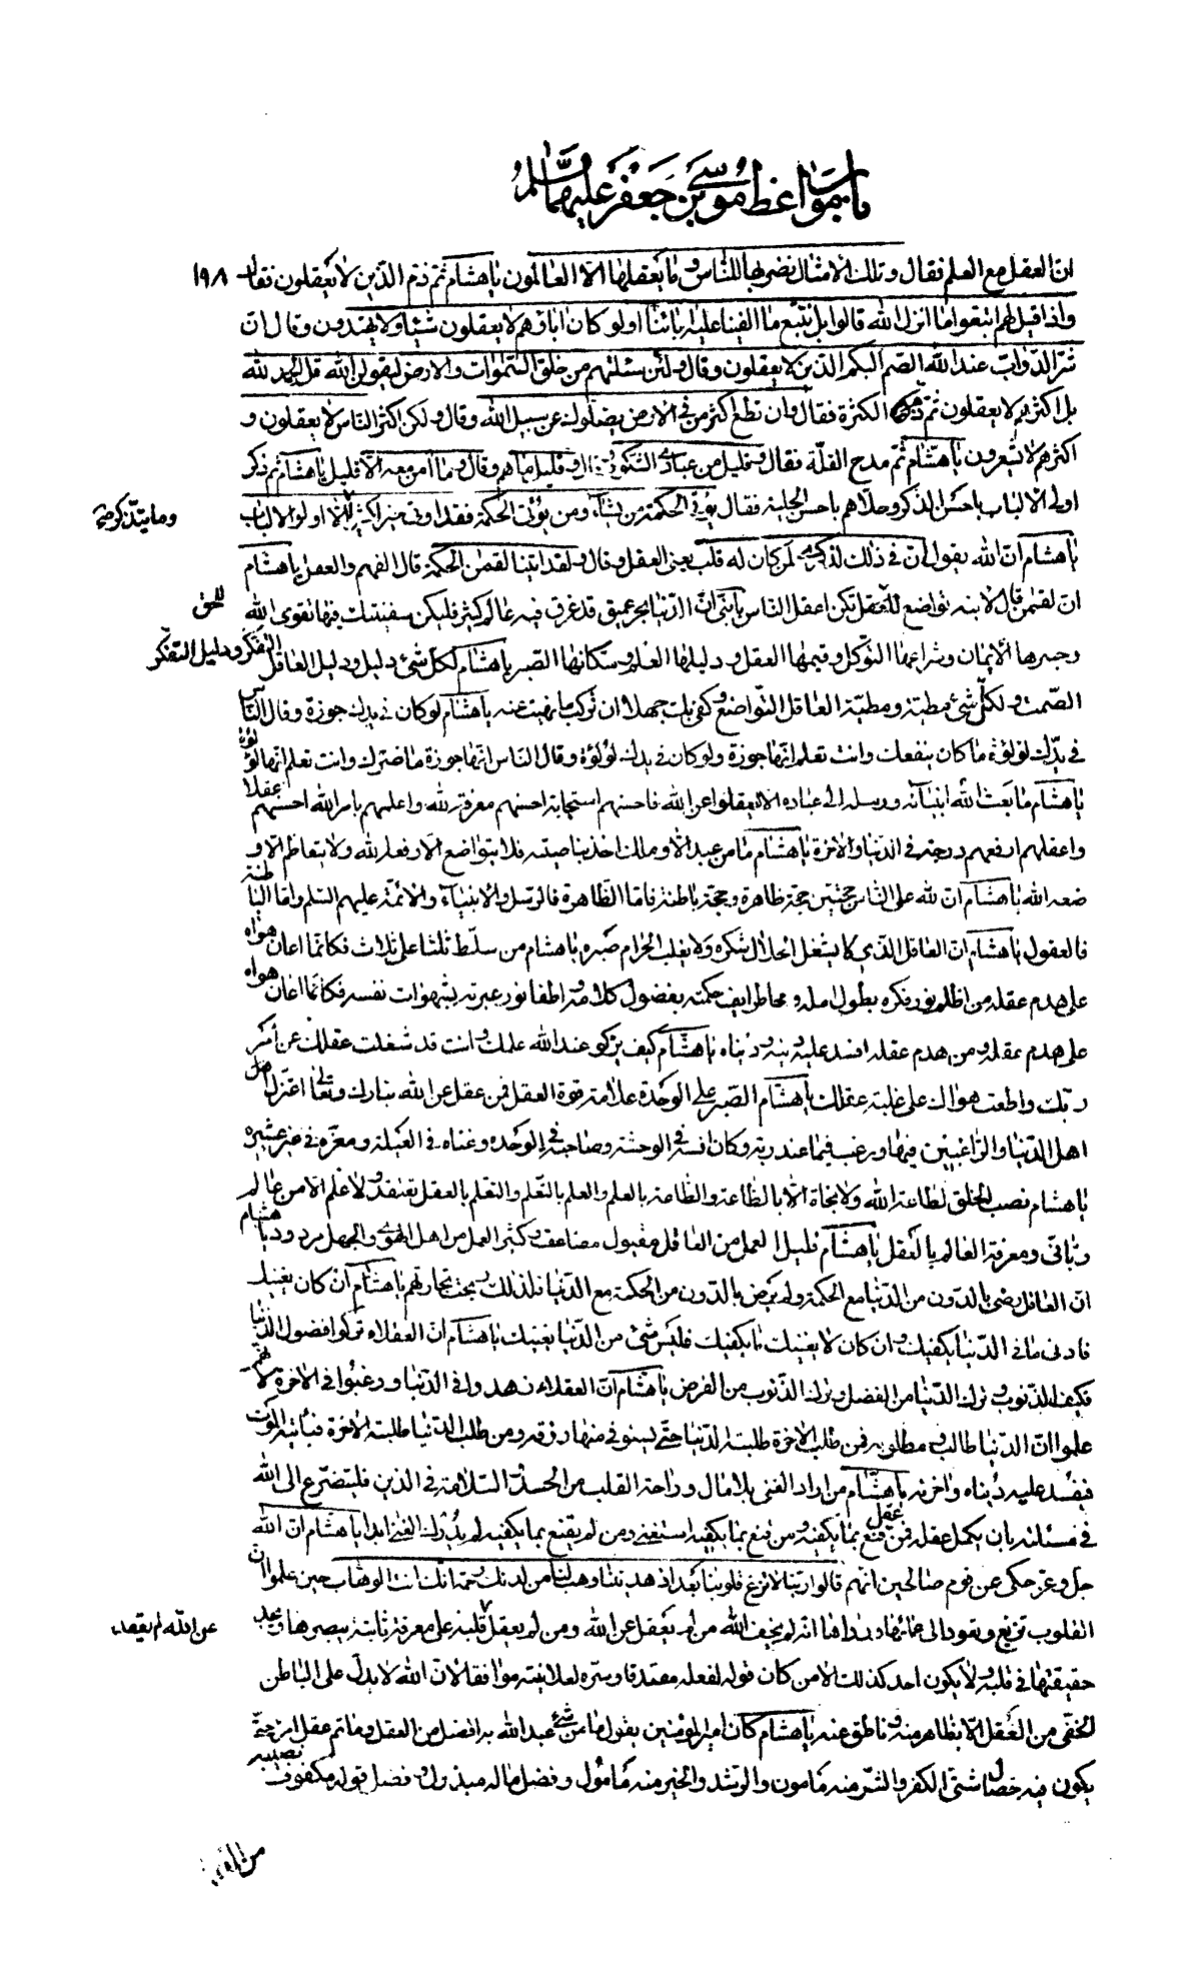 باب مواعظ موسى بن جعفر عليهما السلم
ان العقل مع العلم فقال وتلك الامثال نضربها للناس وما يعقلها الا العالمون يا هشام ثم ذم الذين لا يعقلون فقال ١٩٨
واذا قيل لهم اتبعوا ما انزل الله قالوا بل نتبع ما الفينا عليه اباءنا اولو كان اباؤهم لا يعقلون شيئا ولا يهتدون وقال ان
شر الدواب عند الله الصم البكم الذين لا يعقلون وقال ولئن سئلتهم من خلق السموات والارض ليقولن الله قل الحمد لله
بل اكثرهم لا يعقلون ثم ذم الكثرة فقال وان تطع اكثر من في الارض يضلوك عن سبيل الله وقال ولكن اكثر الناس لا يعقلون و
اكثرهم لا يشعرون يا هشام ثم مدح القلة فقال وقليل من عبادي الشكور وقليل ما هم وقال وما آمن معه الا قليل يا هشام ثم ذكر
اولى الالباب باحسن الذكر وحلاهم باحسن الحلية فقال يؤتى الحكمة من يشاء ومن يؤتى الحكمة فقد اوتى خيرا كثيرا الا اولو الالباب
وما يتذكر صح
يا هشام ان الله يقول ان في ذلك لذكرى لمن كان له قلب يعنى العقل وقال ولقد اتينا لقمن الحكمة قال الفهم والعقل يا هشام
ان لقمن قال لابنه تواضع للحق تكن اعقل الناس يا بنى ان الدنيا بحر عميق قد غرق فيه عالم كثير فليكن سفينتك فيها تقوى الله
للحق
وجسرها الايمان وشراعها التوكل وقيمها العقل ودليلها العلم وسكانها الصبر يا هشام لكل شئ دليل ودليل العاقل
التفكر ودليل التفكر
الصمت ولكل شئ مطية ومطية العاقل التواضع وكفى بك جهلا ان تركب ما نهيت عنه يا هشام لو كان في يدك جوزة وقال الناس
في يدك لؤلؤة ما كان ينفعك وانت تعلم انها جوزة ولو كان في يدك لؤلؤة وقال الناس انها جوزة ما ضرك وانت تعلم انها لؤلؤة
يا هشام ما بعث الله انبيائه ورسله الى عباده الا ليعقلوا عن الله فاحسنهم استجابة احسنهم معرفة لله واعلمهم بامر الله احسنهم عقلا
واعقلهم ارفعهم درجة في الدنيا والاخرة يا هشام ما من عبد الا وملك اخذ بناصيته فلا يتواضع الا رفعه الله ولا يتعاظم الا و
ضعه الله يا هشام ان لله على الناس حجتين حجة ظاهرة وحجة باطنة فاما الظاهرة فالرسل والانبياء والائمة عليهم السلم واما الباطنة
فالعقول يا هشام ان العاقل الذي لا يشغل الحلال شكره ولا يغلب الحرام صبره يا هشام من سلط ثلثا على ثلاث فكانما اعان هواه
على هدم عقله من اظلم نور فكره بطول امله ومحا طرايف حكمته بفضول كلامه واطفا نور عبرته بشهوات نفسه فكانما اعان هواه
على هدم عقله ومن هدم عقله افسد عليه دينه ودنياه يا هشام كيف يزكو عند الله عملك وانت قد شغلت عقلك عن امر
ربك واطعت هواك على غلبة عقلك يا هشام الصبر على الوحدة علامة قوة العقل فمن عقل عن الله تبارك وتعالى اعتزل
اهل الدنيا والراغبين فيها ورغب فيما عند ربه وكان انسه في الوحشة وصاحبه في الوحدة وغناه في العيلة ومعزه في غير عشيرة
يا هشام نصب الخلق لطاعة الله ولا نجاة الا بالطاعة والطاعة بالعلم والعلم بالتعلم والتعلم بالعقل يعتقد ولا علم الا من عالم
ربانى ومعرفة العالم بالعقل يا هشام قليل العمل من العاقل مقبول مضاعف وكثير العمل من اهل الهوى والجهل مردود يا هشام
ان العاقل رضى بالدون من الدنيا مع الحكمة ولم يرض بالدون من الحكمة مع الدنيا فلذلك ربحت تجارتهم يا هشام ان كان يغنيك
فادنى ما في الدنيا يكفيك وان كان لا يغنيك ما يكفيك فليس شئ من الدنيا يغنيك يا هشام ان العقلاء تركوا فضول الدنيا
فكيف الذنوب وترك الدنيا من الفضل وترك الذنوب من الفرض يا هشام ان العقلاء زهدوا في الدنيا ورغبوا في الاخرة لانهم
علموا ان الدنيا طالب ومطلوبه فمن طلب الاخرة طلبته الدنيا حتى يستوفى منها رزقه ومن طلب الدنيا طلبته الاخرة فياتيه الموت
فيفسد عليه دنياه واخرته يا هشام من اراد الغنى بلا مال وراحة القلب من الحسد والسلامة في الدين فليتضرع الى الله
في مسئلته بان يكمل عقله فمن عقل قنع بما يكفيه ومن قنع بما يكفيه استغنى ومن لم يقنع بما يكفيه لم يدرك الغنى ابدا يا هشام ان الله
جل وعز حكى عن قوم صالحين انهم قالوا ربنا لا تزغ قلوبنا بعد اذ هديتنا وهب لنا من لدنك رحمة انك انت الوهاب حين علموا ان
القلوب تزيغ وتعود الى عماها ورداها انه لم يخف الله من لم يعقل عن الله ومن لم يعقل قلبه على معرفة ثابتة يبصرها ويجد
عن الله لم يعقد
حقيقتها في قلبه ولا يكون احد كذلك الا من كان قوله لفعله مصدقا وسره لعلانيته موافقا لان الله لا يدل على الباطن
الخفى من العقل الا بظاهر منه وناطق عنه يا هشام كان امير المؤمنين يقول ما من شئ عبد الله به افضل من العقل وما تم عقل امرء حتى
يكون فيه خصال شتى الكفر والشر منه مامون والرشد والخير منه مامول وفضل ماله مبذول وفضل قوله مكفوف نصيبه